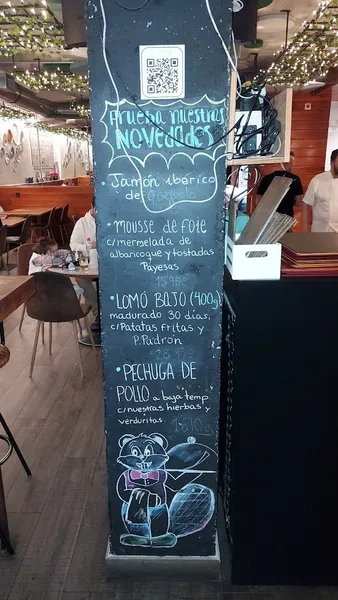 Prueba nuestras
NOVEDADES
• Jamón ibérico
de
• MOUSSE DE FOIE
c/mermelada de
albaricoque y tostadas
Payesas
• LOMO BAJO (400g)
madurado 30 días,
c/Patatas fritas y
P.Padrón
• PECHUGA DE
POLLO a baja temp
c/nuestras hierbas y
verduritas